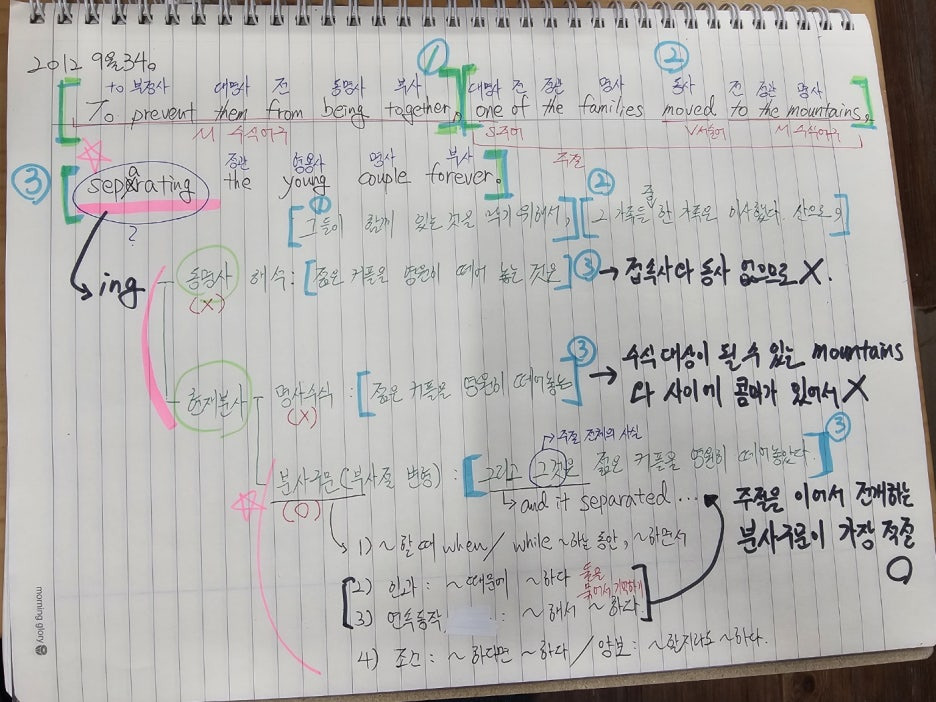 2012 9월 34번
to 부정사 대명사 전 동명사 부사 ① 대명사 전 정관 명사 ② 동사 전 정관 명사
[To prevent them from being together,] [one of the families moved to the mountains,]
M 수식어구 S 주어 V 서술어 M 수식어구
주절
정관 형용사 명사 부사
③ [separating the young couple forever.]
a
?
[① 그들이 함께 있는 것을 막기 위해서,] [② 그 가족들 중 한 가족은 이사했다. 산으로,]
→ ing
동명사 해석: [젊은 커플을 영원히 떼어 놓는 것은] ③ → 접속사나 동사 없으므로 X.
(X)
현재분사 명사수식 : [젊은 커플을 영원히 떼어놓는] ③ → 수식 대상이 될 수 있는 mountains
(X) 나 사이에 콤마가 있어서 X
→ 주절 전체의 사실
분사구문(부사절 변형) : [그리고 그것은 젊은 커플을 영원히 떼어놓았다.] ③
(O) → and it separated ...
주절을 이어서 전개하는
분사구문이 가장 적절
O
1) ~할 때 when / while ~하는 동안, ~하면서
2) 인과 : ~ 때문에 ~하다 둘을
묶어서 기억하기
3) 연속동작 : ~해서 ~하다
4) 조건 : ~하다면 ~하다 / 양보 : ~할지라도 ~하다.
morning glory